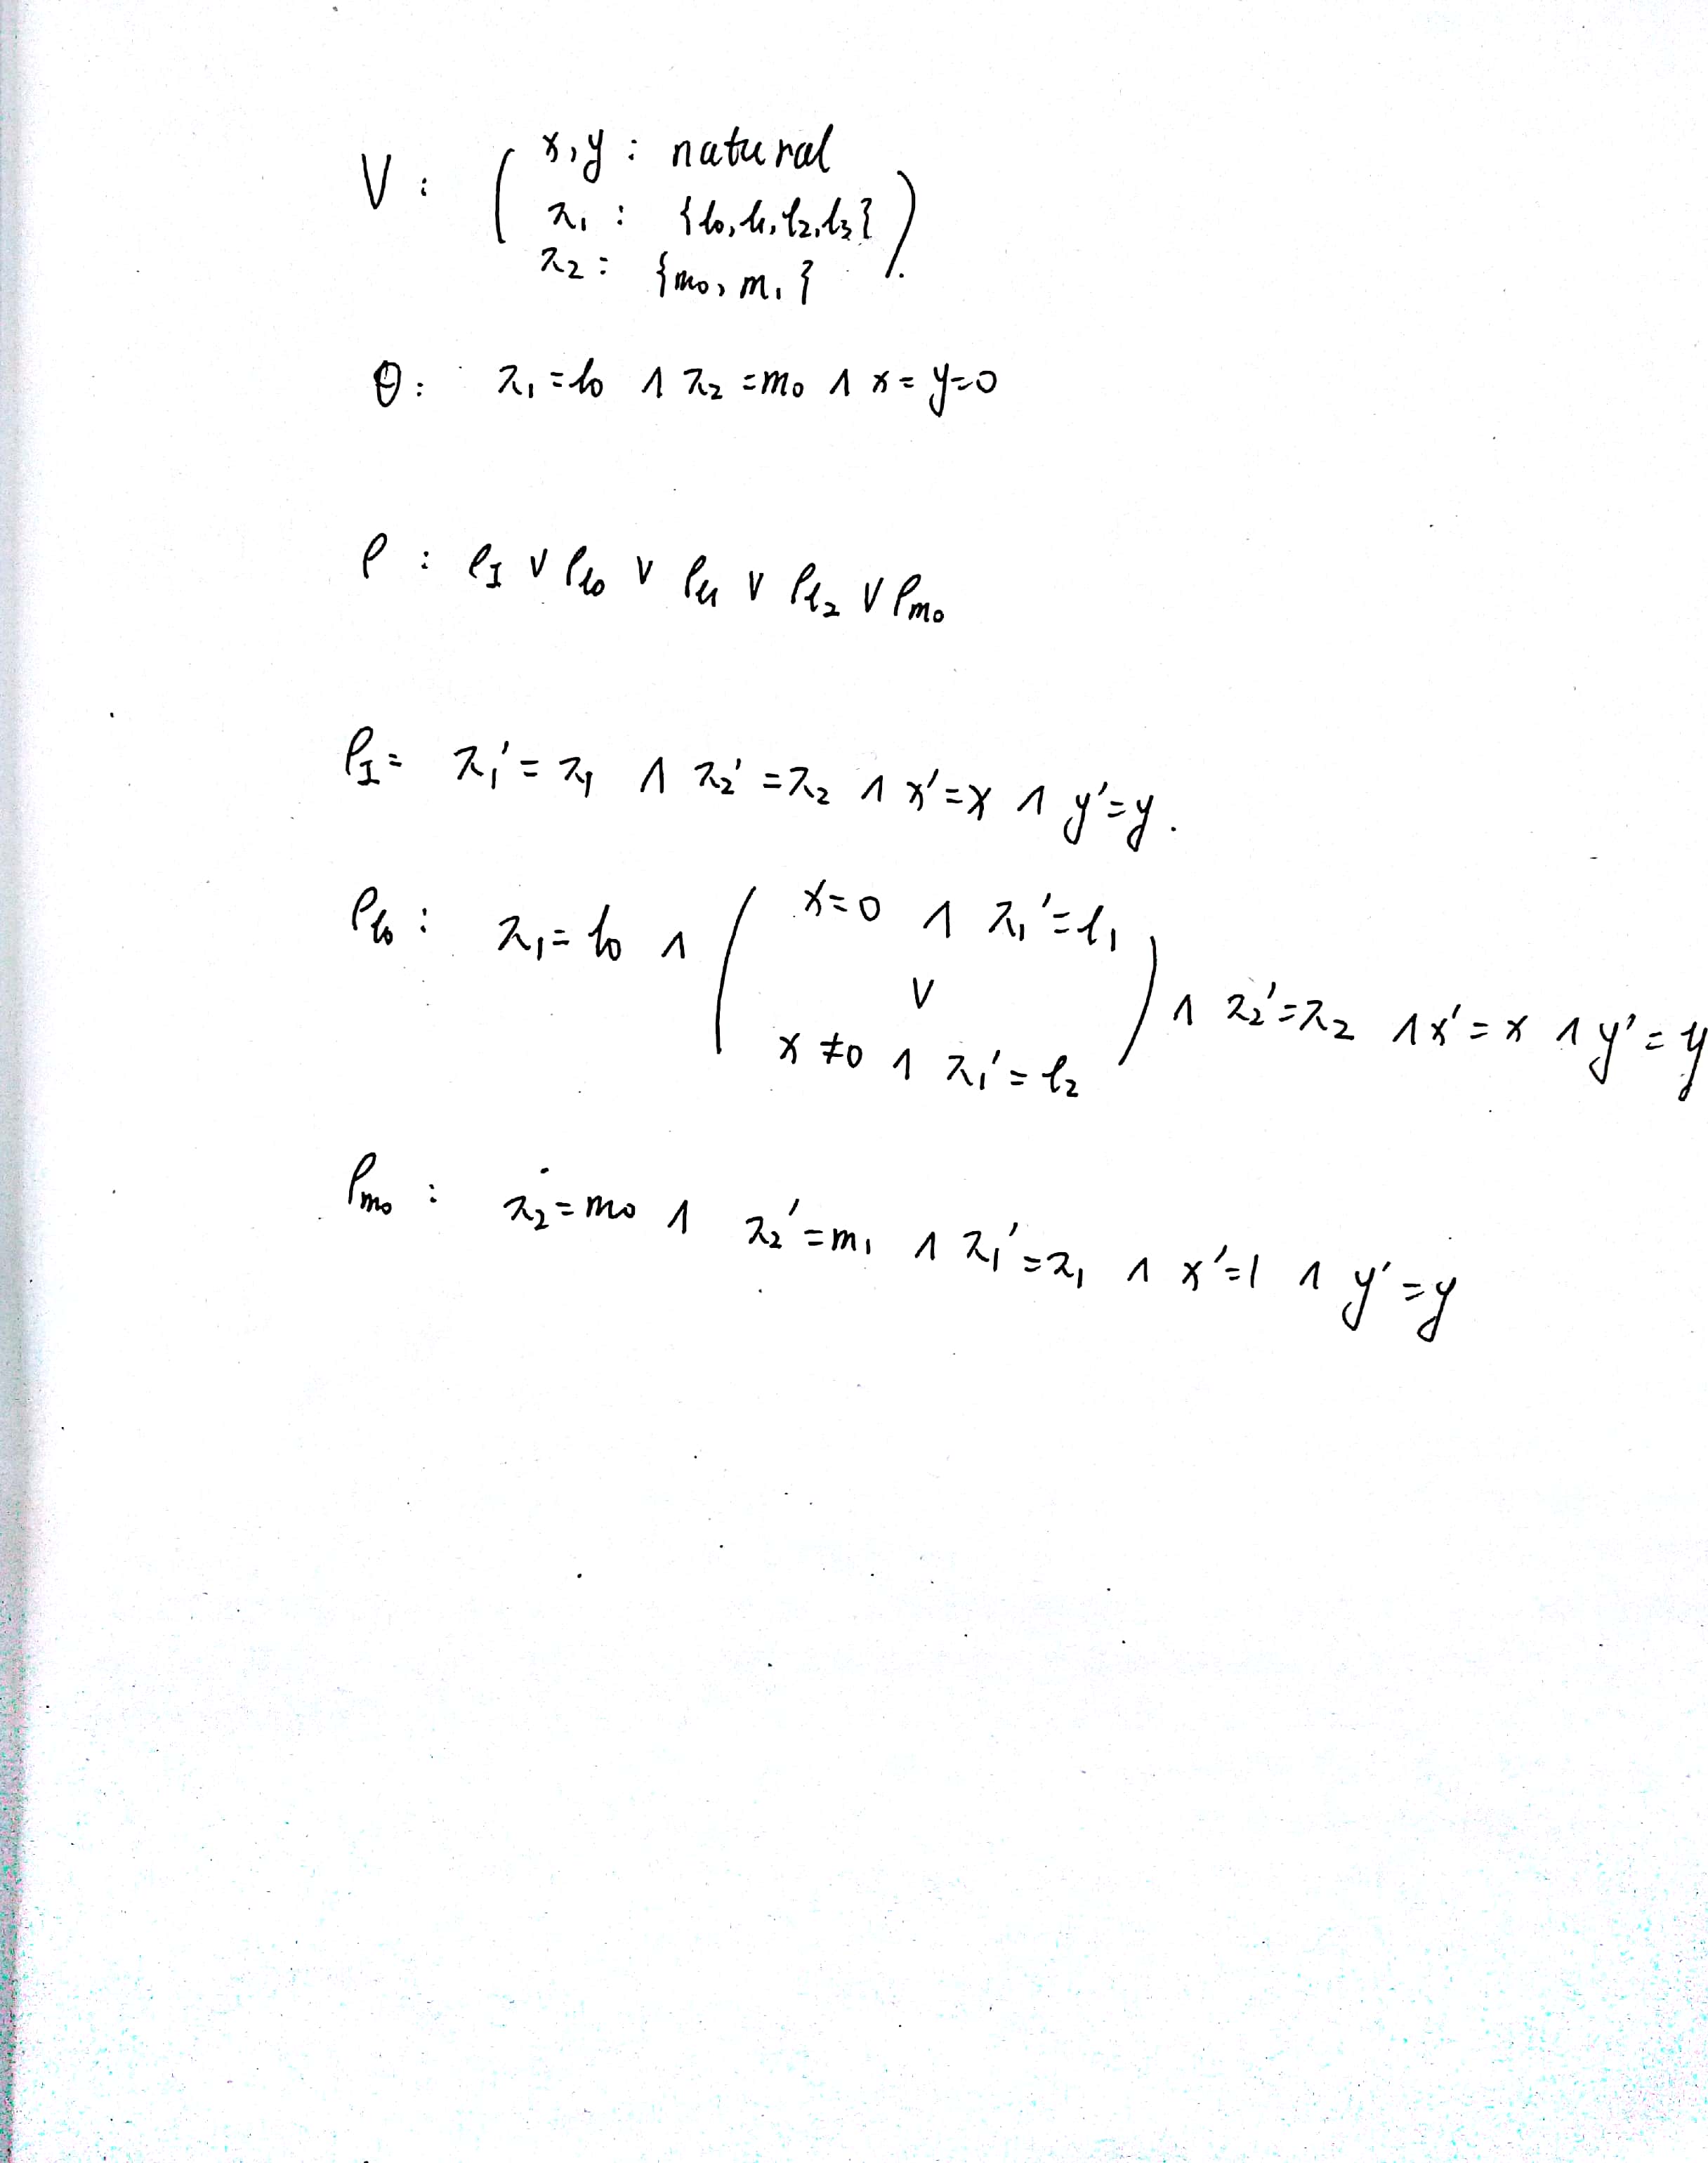 V : ( x, y : natural
π₁ : {l₀, l₁, l₂, l₃}
π₂ : {m₀, m₁} ).
Θ : π₁ = l₀ ∧ π₂ = m₀ ∧ x = y = 0
ρ : ρ_I ∨ ρ_l₀ ∨ ρ_l₁ ∨ ρ_l₂ ∨ ρ_m₀
ρ_I = π₁' = π₁ ∧ π₂' = π₂ ∧ x' = x ∧ y' = y.
ρ_l₀ : π₁ = l₀ ∧ ( x = 0 ∧ π₁' = l₁
∨
x ≠ 0 ∧ π₁' = l₂ ) ∧ π₂' = π₂ ∧ x' = x ∧ y' = y
ρ_m₀ : π₂ = m₀ ∧ π₂' = m₁ ∧ π₁' = π₁ ∧ x' = 1 ∧ y' = y